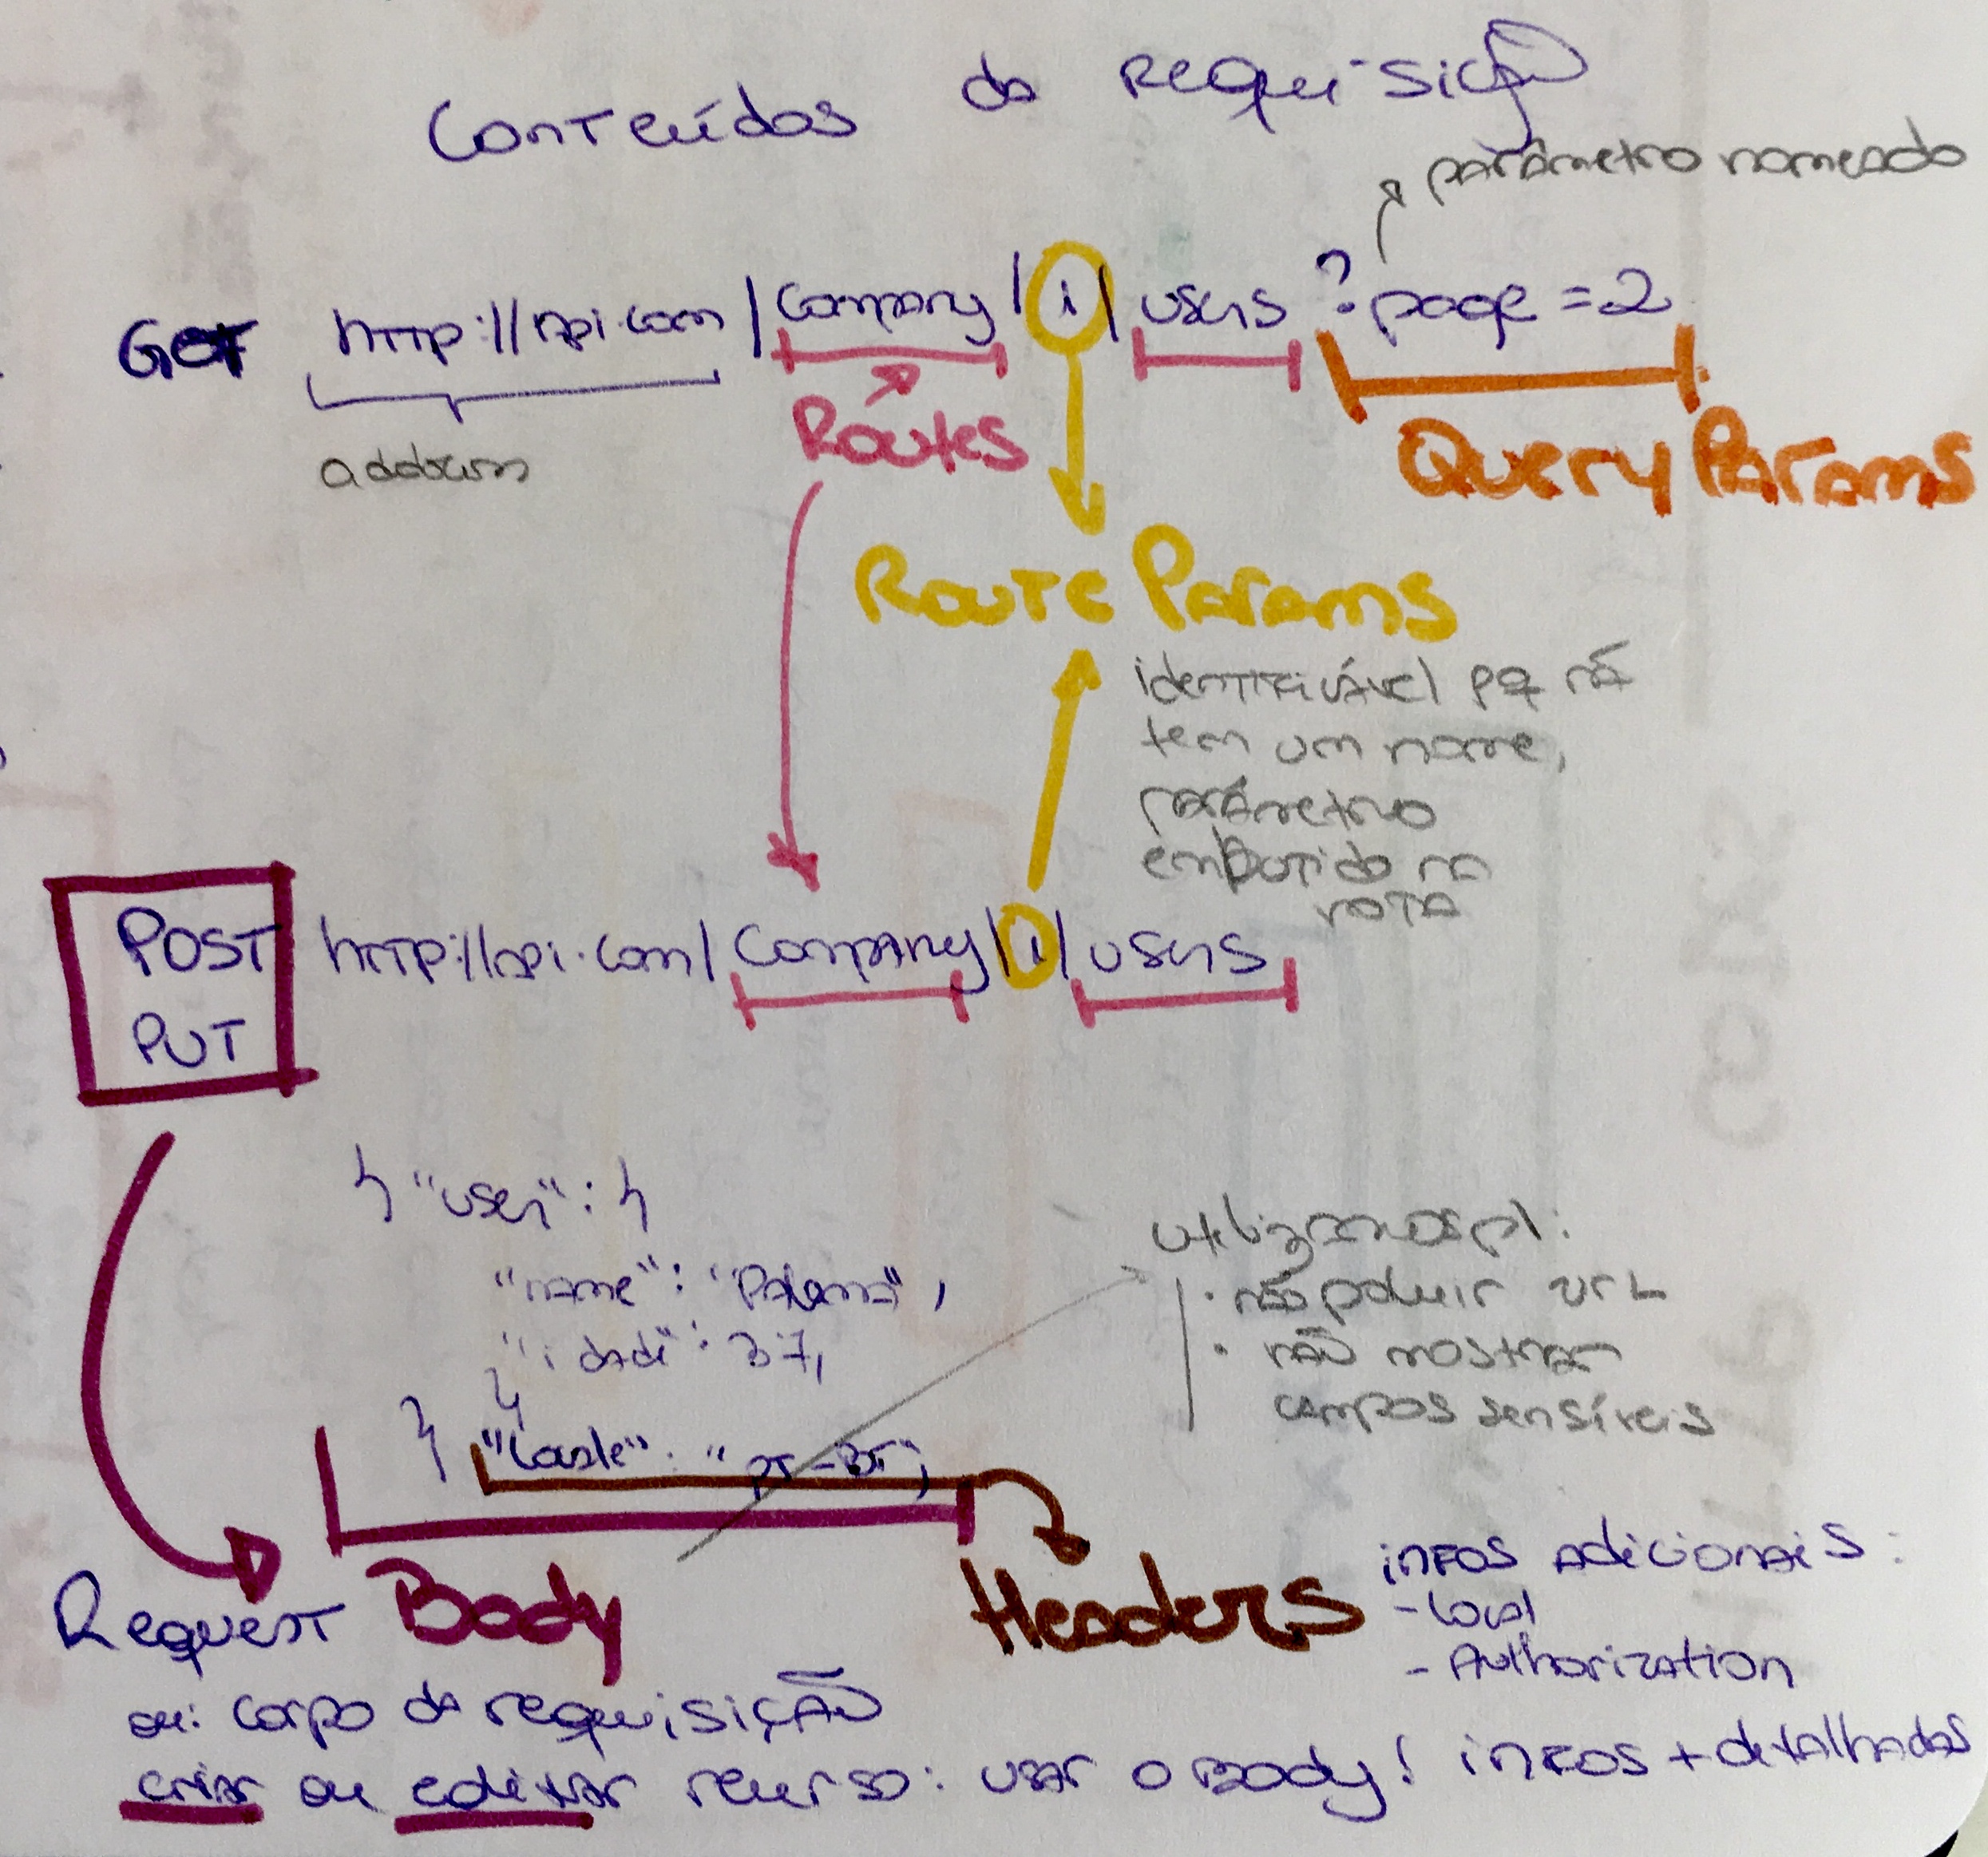 Conteúdos da Requisição
parâmetro nomeado
GET http://api.com/company/1/users ?page=2
address
Routes
Query Params
Route Params
identificável pq ñ
tem um nome,
parâmetro
embutido na
rota
POST http://api.com/company/1/users
PUT
{ "user": {
"name": "Paloma",
"idade": 37,
}
} "locale": "pt-BR",
utilizamos p/:
· não poluir URL
· não mostrar
campos sensíveis
Request Body
Headers
infos adicionais:
- local
- Authorization
ou: corpo da requisição
criar ou editar recurso: usar o Body! infos + detalhadas